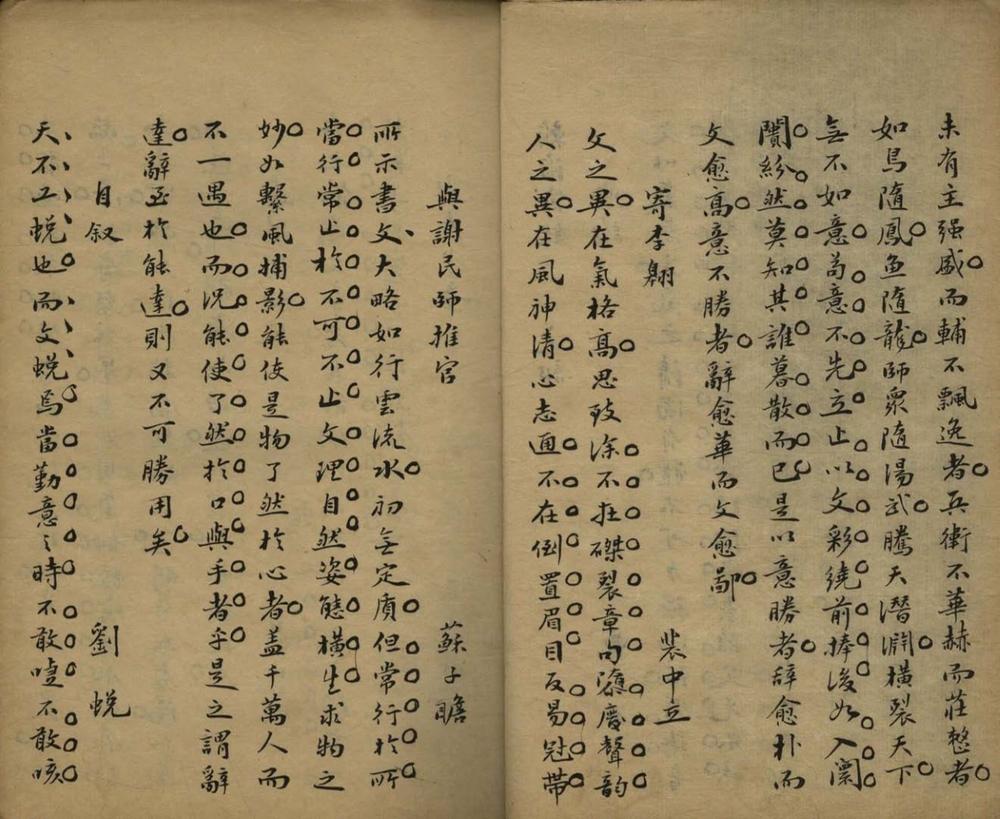 未有主强盛而輔不飄逸者兵衛不華赫而莊整者
如鳥隨鳳魚隨龍師衆隨湯武騰天潛淵橫裂天下
無不如意苟意不先立止以文彩繞前捧後如入闤
闠紛然莫知其誰暮散而已是以意勝者辞愈朴而
文愈高意不勝者辭愈華而文愈鄙
寄李翱 裴中立
文之異在氣格高思致深不在磔裂章句隳廢聲韵
人之異在風神清心志通不在倒置眉目反易冠帶
與謝民師推官 蘇子瞻
所示書文大略如行雲流水初無定質但常行於所
當行常止於不可不止文理自然姿態橫生求物之
妙如繫風捕影能使是物了然於心者盖千萬人而
不一遇也而况能使了然於口與手者乎是之謂辭
達辭至於能達則又不可勝用矣
自叙 劉蜕
天不工蜕也而文蜕焉當勤意之時不敢嚏不敢咳